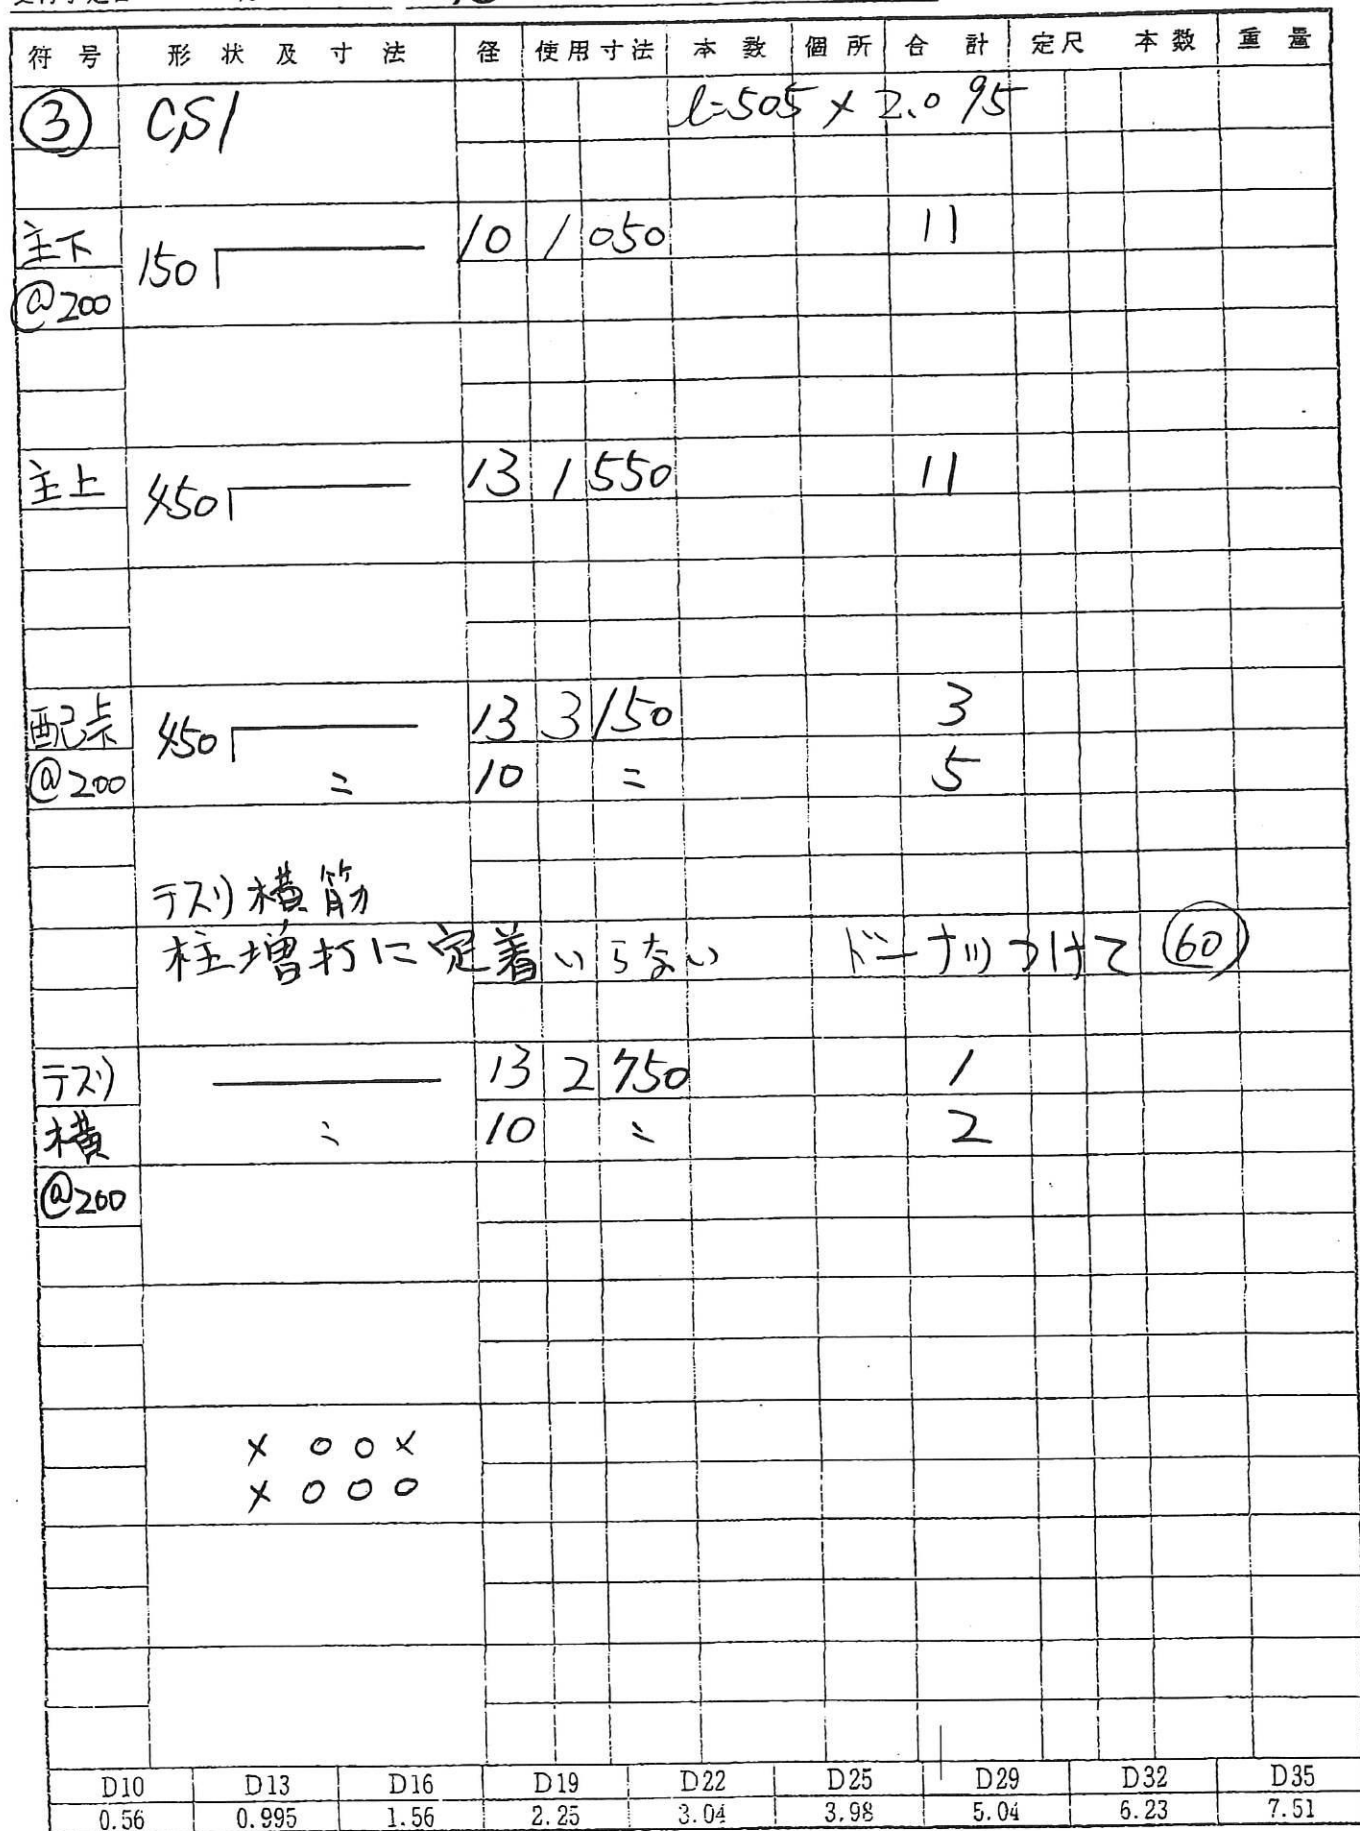 符号 形状及寸法 径 使用寸法 本数 個所 合計 定尺 本数 重量
③ CS1 l=505 × 2.095
主下 150 10 1 050 11
@200
主上 450 13 1 550 11
配点 450 13 3 150 3
@200 〃 10 〃 5
テスリ横筋
柱増打に定着いらない ドーナツつけて 60
テスリ 13 2 750 1
横 〃 10 〃 2
@200
× ○ ○ ×
× ○ ○ ○
D10 D13 D16 D19 D22 D25 D29 D32 D35
0.56 0.995 1.56 2.25 3.04 3.98 5.04 6.23 7.51